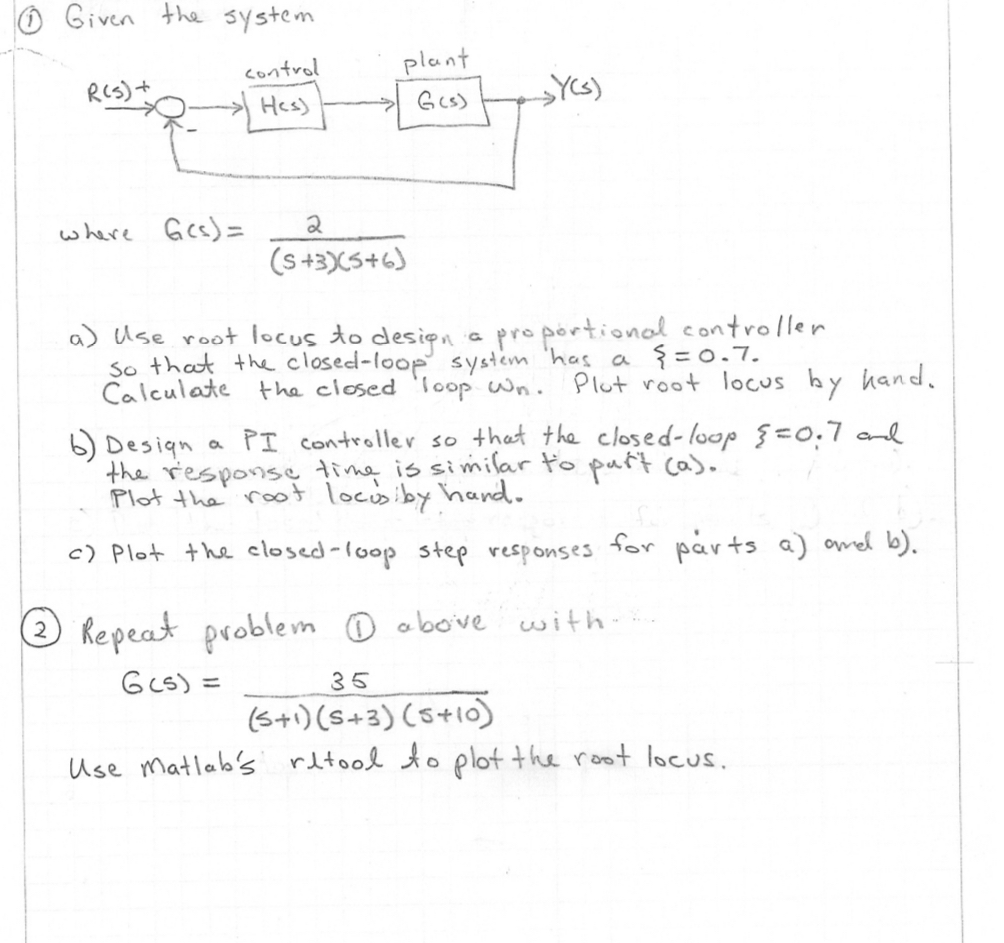 ① Given the system
control
plant
R(s) +
H(s)
G(s)
Y(s)
-
where G(s) = 2
(s+3)(s+6)
a) Use root locus to design a proportional controller
so that the closed-loop system has a ξ = 0.7.
Calculate the closed loop ωn. Plot root locus by hand.
b) Design a PI controller so that the closed-loop ξ=0.7 and
the response time is similar to part (a).
Plot the root locus by hand.
c) Plot the closed-loop step responses for parts a) and b).
② Repeat problem ① above with
G(s) = 35
(s+1)(s+3)(s+10)
Use Matlab's rltool to plot the root locus.